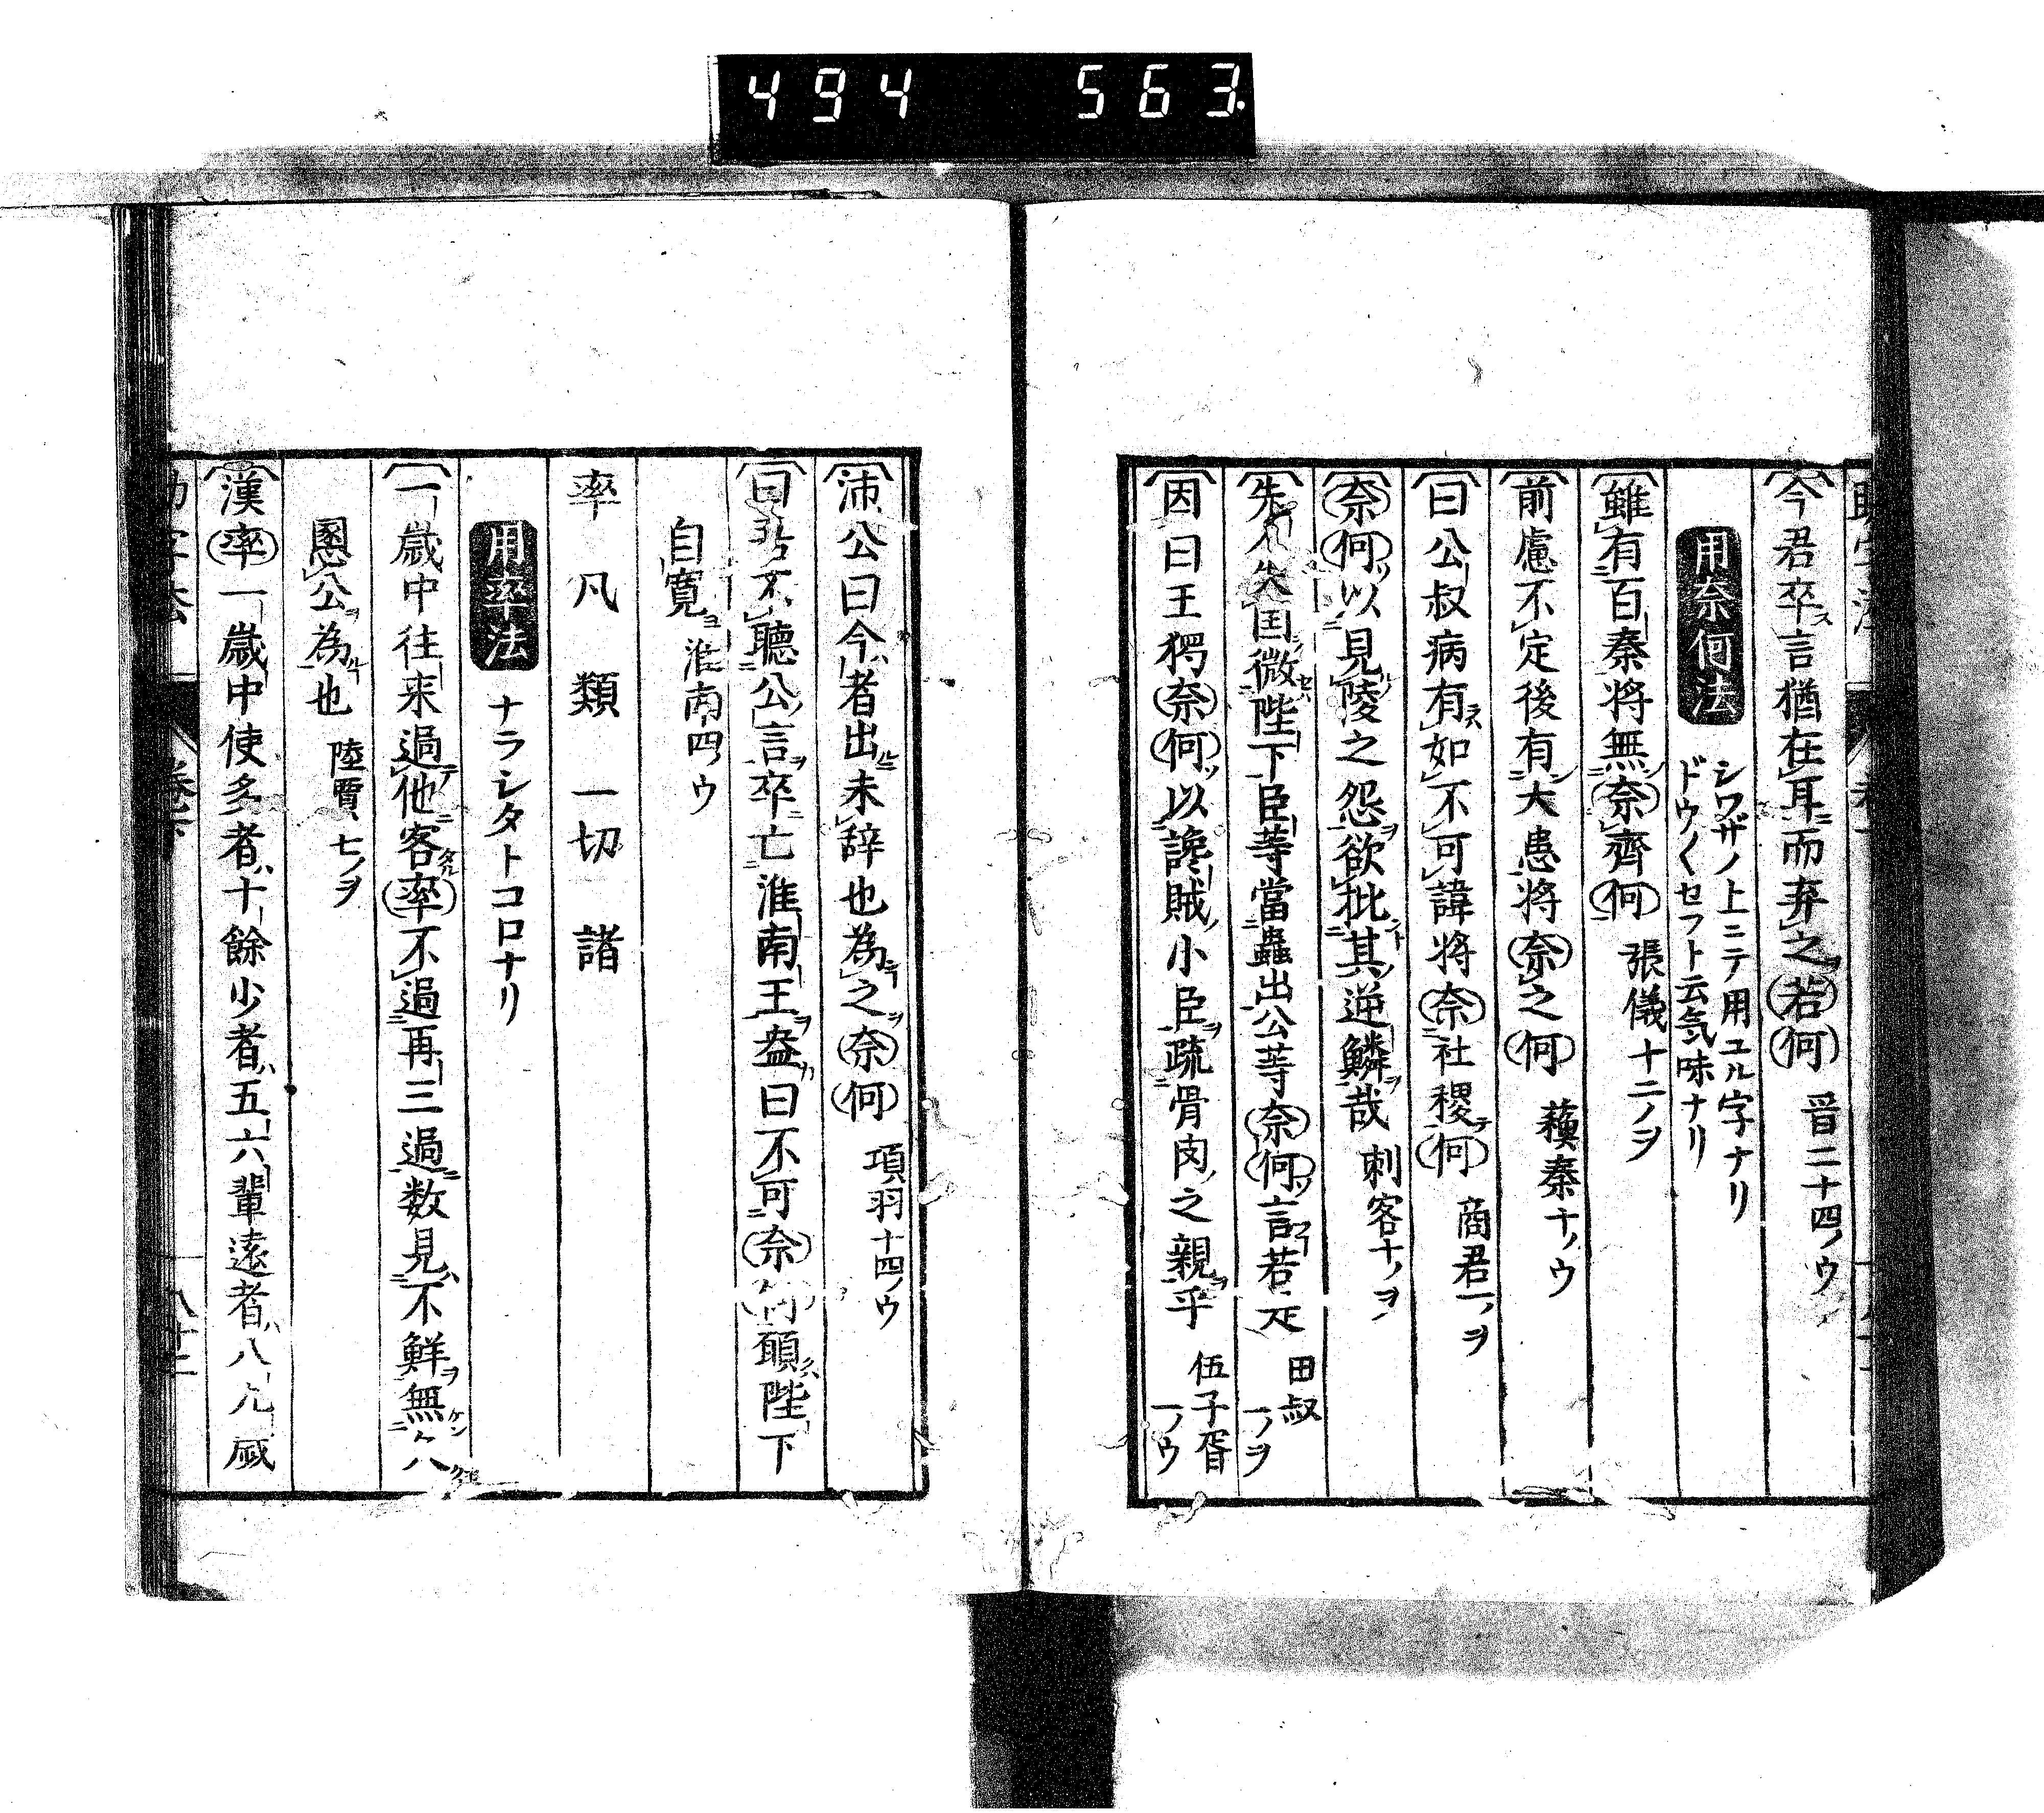 494 563
今君卒言猶在耳而弃之若何 晋二十四ノウ
用奈何法 シワザノ上ニテ用ユル字ナリ
ドウ〱セフト云気味ナリ
雖有百秦将無奈齊何 張儀十二ノヲ
前慮不定後有大患将奈之何 蘓秦十ノウ
曰公叔病有如不可諱将奈社稷何 商君一ノヲ
奈何以見陵之怨欲批其逆鱗哉 刺客十ノヲ
先 失国微陛下臣等當蟲出公等奈何言若是 田叔一ノヲ
因曰王獨奈何以讒賊小臣疏骨肉之親乎 伍子胥一ノウ
沛公曰今者出未辞也為之奈何 項羽十四ノウ
曰 不聴公言卒亡淮南王盎曰不可奈何願陛下
自寛 淮南四ノウ
率凡類一切諸
用率法 ナラシタトコロナリ
一歳中往来過他客率不過再三過数見不鮮無久
慁公為也 陸賈七ノヲ
漢率一歳中使多者十餘少者五六輩遠者八九歳
助字法 巻下 八十二